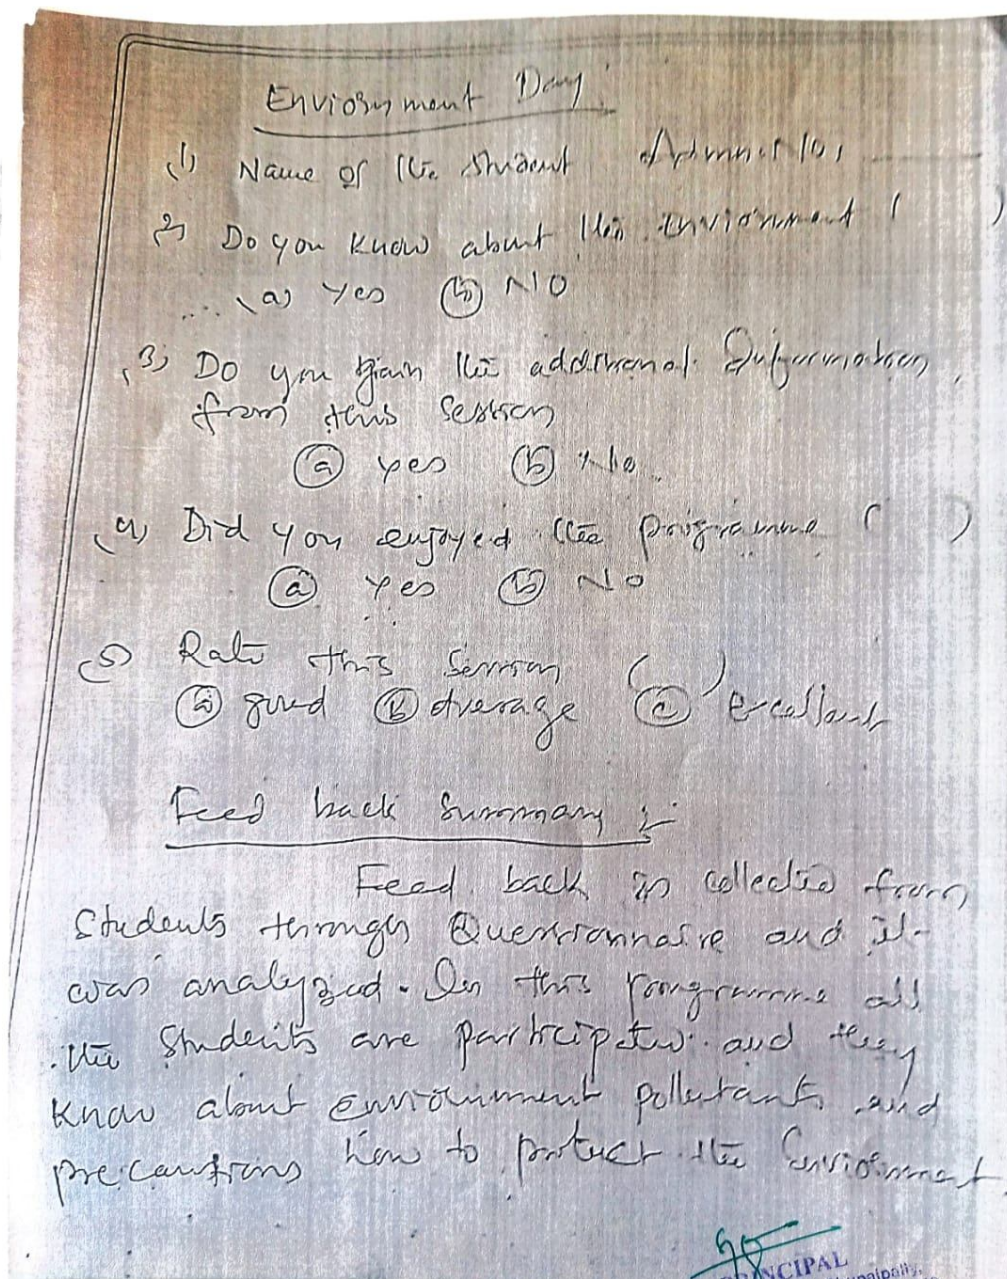 Enviornment Day
(1) Name of the Student
2) Do you know about the enviornment ( )
(a) Yes (b) NO
(3) Do you gain the additional Information
from this Session
(a) yes (b) No
(4) Did you enjoyed the programme ( )
(a) Yes (b) No
(5) Rate this Session ( )
(a) good (b) average (c) excellent
Feed back Summary :-
Feed back is collected from
Students through Questionnaire and it
was analyzed. In this programme all
the Students are participated and they
know about environment pollutants and
precautions how to protect the enviornment
PRINCIPAL